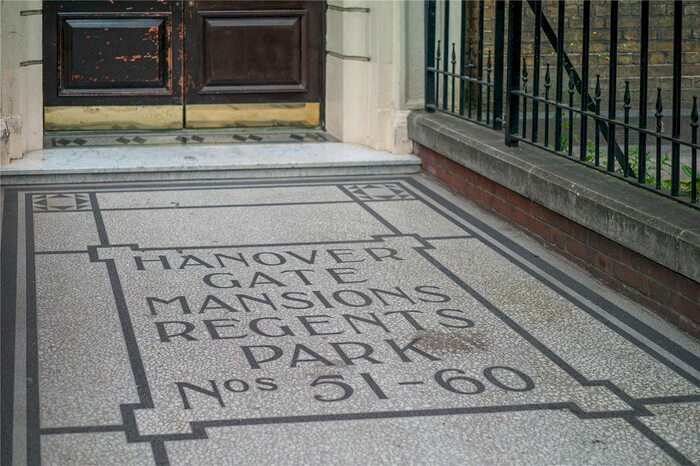 HANOVER
GATE
MANSIONS
REGENTS
PARK
Nos 51-60